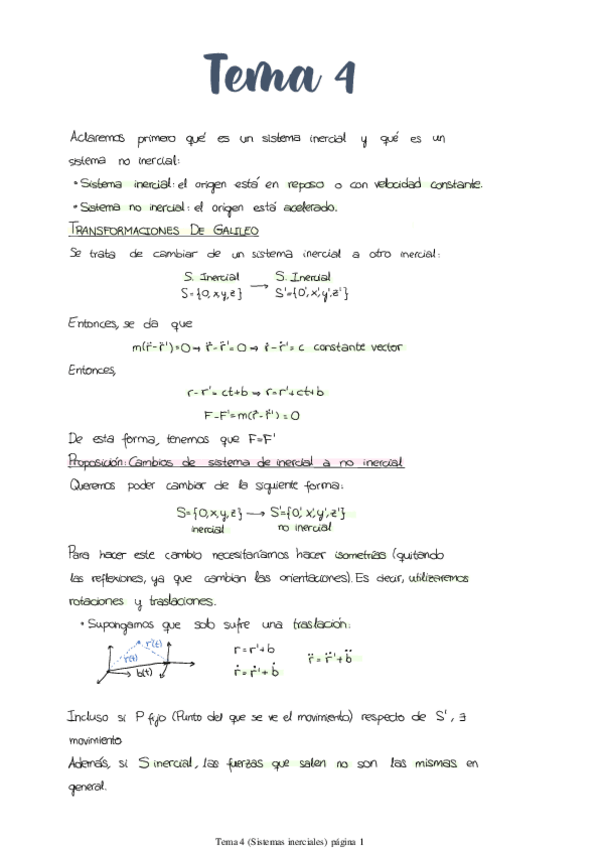 Tema 4
Aclaremos primero qué es un sistema inercial y qué es un
sistema no inercial:
• Sistema inercial: el origen está en reposo o con velocidad constante.
• Sistema no inercial: el origen está acelerado.
TRANSFORMACIONES DE GALILEO
Se trata de cambiar de un sistema inercial a otro inercial:
S. Inercial S. Inercial
S={O,x,y,z} → S'={O',x',y',z'}
Entonces, se da que
m(r̈-r̈')=0→ r̈-r̈'=0→ ṙ-ṙ'=c constante vector
Entonces,
r-r'=ct+b ⇒ r=r'+ct+b
F-F'=m(r̈-r̈')=0
De esta forma, tenemos que F=F'
Proposición: Cambios de sistema de inercial a no inercial
Queremos poder cambiar de la siguiente forma:
S={O,x,y,z} → S'={O',x',y',z'}
inercial no inercial
Para hacer este cambio necesitaríamos hacer isometrías (quitando
las reflexiones, ya que cambian las orientaciones). Es decir, utilizaremos
rotaciones y traslaciones.
• Supongamos que solo sufre una traslación:
r(t) r'(t) b(t)
r=r'+b
ṙ=ṙ'+ḃ
r̈=r̈'+b̈
Incluso si P fijo (Punto del que se ve el movimiento) respecto de S', ∃
movimiento
Además, si S inercial, las fuerzas que salen no son las mismas en
general.
Tema 4 (Sistemas inerciales) página 1